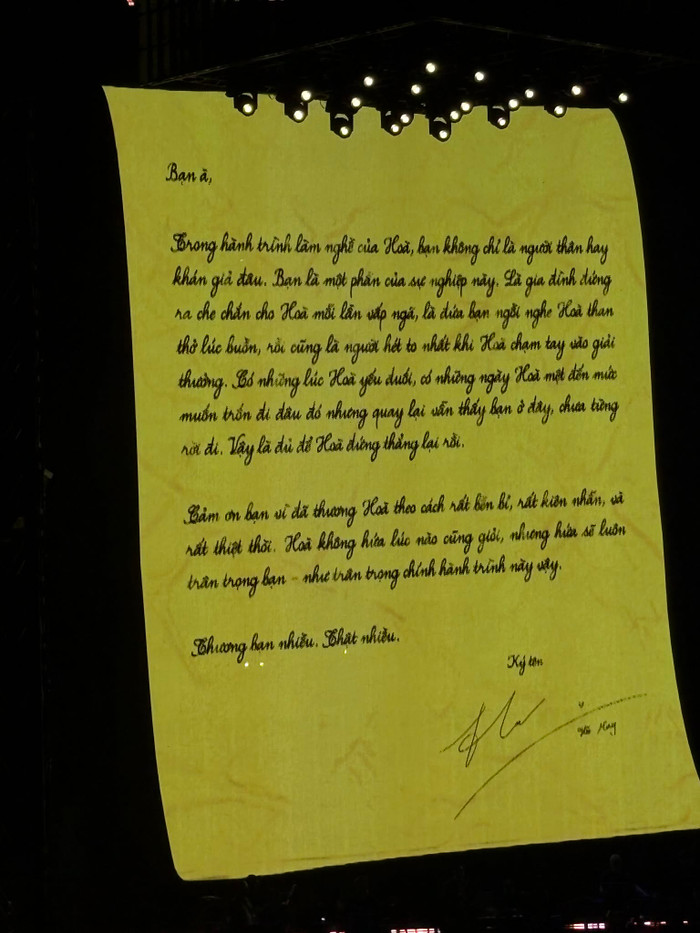 Bạn à,
Trong hành trình làm nghề của Hoà, bạn không chỉ là người thân hay
khán giả đâu. Bạn là một phần của sự nghiệp này. Là gia đình đứng
ra che chắn cho Hoà mỗi lần vấp ngã, là đứa bạn ngồi nghe Hoà than
thở lúc buồn, rồi cũng là người hét to nhất khi Hoà chạm tay vào giải
thưởng. Có những lúc Hoà yếu đuối, có những ngày Hoà mệt đến mức
muốn trốn đi đâu đó nhưng quay lại vẫn thấy bạn ở đây, chưa từng
rời đi. Vậy là đủ để Hoà đứng thẳng lại rồi.
Cảm ơn bạn vì đã thương Hoà theo cách rất bền bỉ, rất kiên nhẫn, và
rất thiệt thòi. Hoà không hứa lúc nào cũng giỏi, nhưng hứa sẽ luôn
trân trọng bạn - như trân trọng chính hành trình này vậy.
Thương bạn nhiều. Thật nhiều.
Ký tên